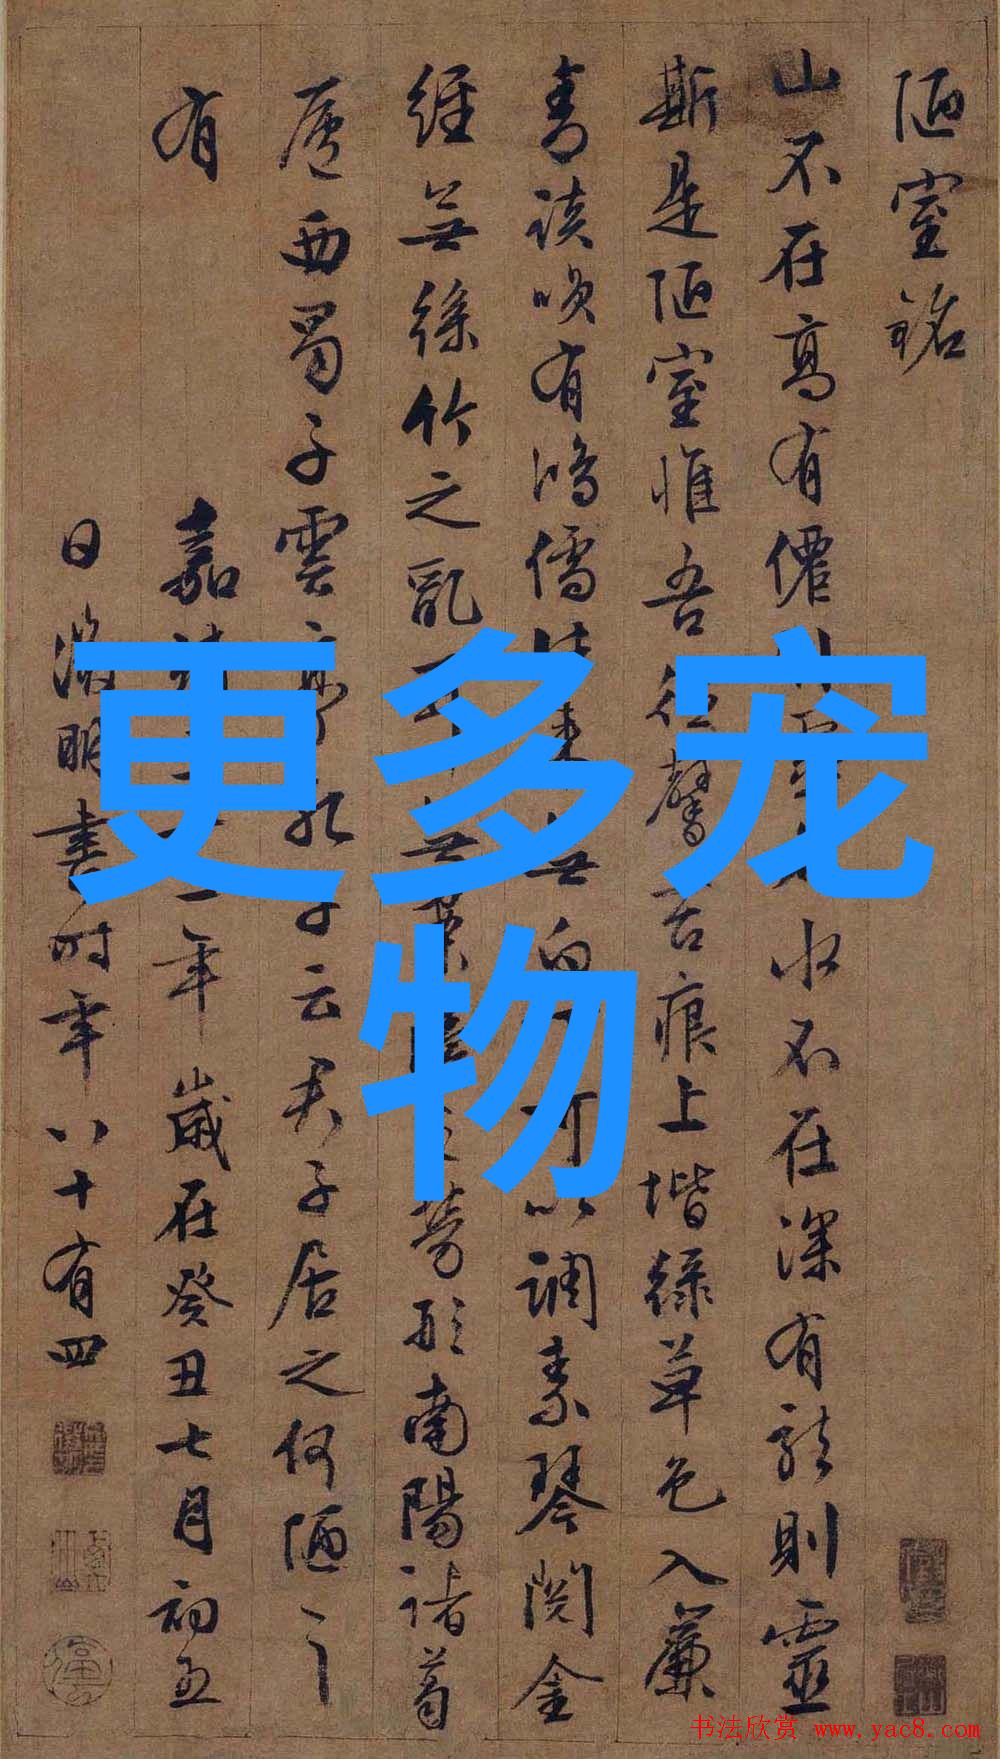 陋室銘
山不在高有僊水不在深有龍則靈
斯是陋室惟吾德馨苔痕上堦綠草色入簾
青談笑有鴻儒往來無白可以調素琴閱金
經無絲竹之亂耳無案之勞形南陽諸葛
廬西蜀子雲亭孔子云君子居之何陋之
有
嘉靖三十二年歲在癸丑七月初五
日徵明書時年八十有四
更多宠
物
书法欣赏 www.yac8.com